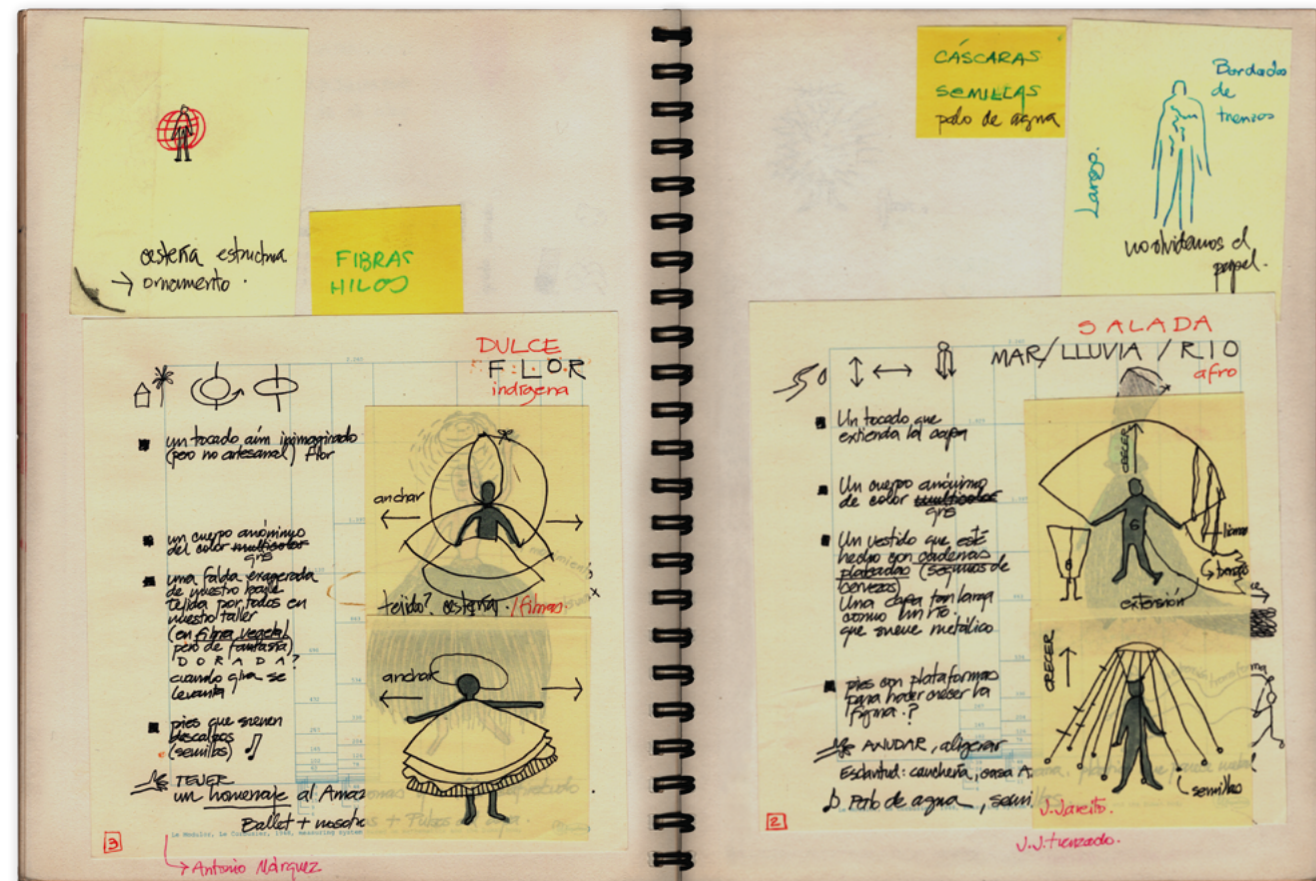 cestería estructura
→ ornamento.
FIBRAS
HILOS
DULCE
FLOR
indígena
un tocado, aún inimaginado
(pero no artesanal) Flor
un cuerpo anónimo
del color multicolor
gris
una falda exagerada
de nuestro baile
tejida por todos en
nuestro taller
(en fibra vegetal
pero de fantasía)
DORADA?
cuando gira se
levanta
pies que suenen
descalzos
(semillas)
TEJER
un homenaje al Amaz
Ballet + nosotr
anchar
tejido? cestería. / fibras
anchar
3
Le Modulor, Le Corbusier, 1948, measuring system
→ Antonio Márquez
CÁSCARAS
SEMILLAS
palo de agua
Bordados
de
trenzas
Largo.
no olvidemos el
papel.
SALADA
MAR/LLUVIA/RIO
afro
Un tocado que
extienda la capa
Un cuerpo anónimo
de color multicolor
gris
Un vestido que esté
hecho con cadenas
plateadas (seguros de
cervezas)
Una capa tan larga
como un río.
que suene metálico
pies con plataformas
para hacer crecer la
figura.?
ANUDAR, aligerar
Esclavitud: cauchería, casa A
Palo de agua, semi
CRECER
extensión
CRECER
semillas
J. Jareito.
J.J. trenzado.
2